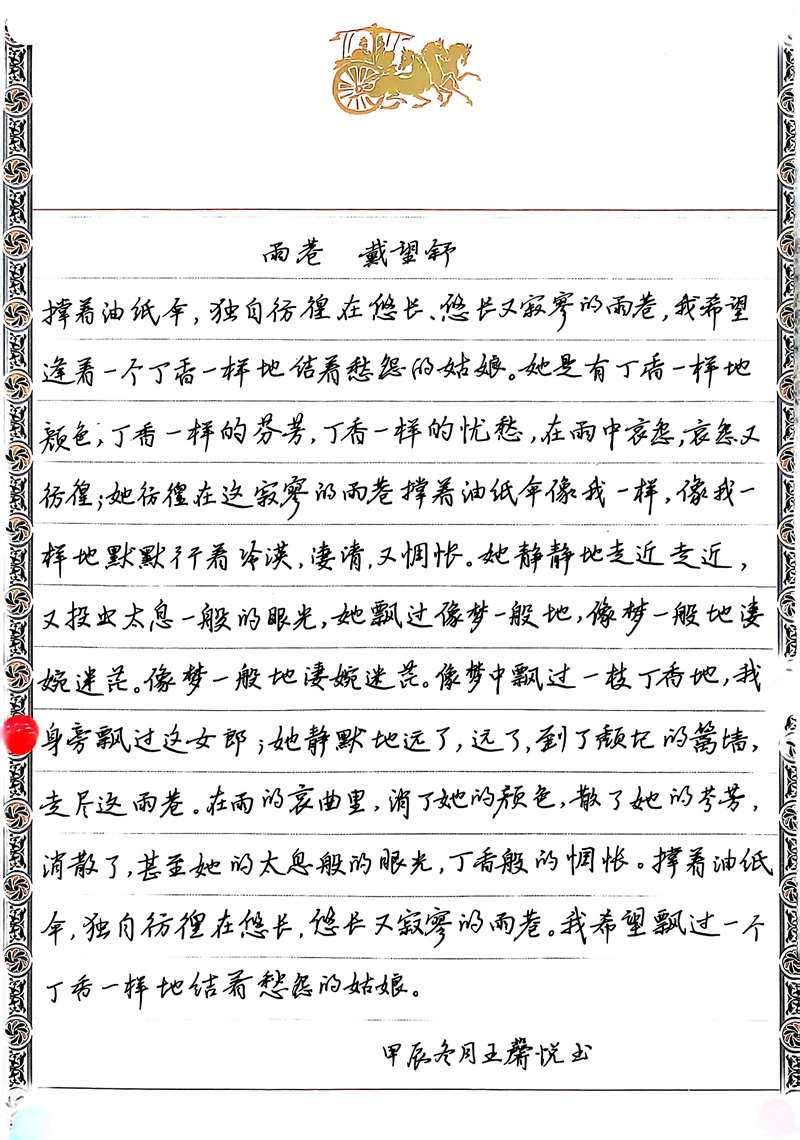 雨巷 戴望舒
撑着油纸伞,独自彷徨在悠长、悠长又寂寥的雨巷,我希望
逢着一个丁香一样地结着愁怨的姑娘。她是有丁香一样地
颜色,丁香一样的芬芳,丁香一样的忧愁,在雨中哀怨,哀怨又
彷徨;她彷徨在这寂寥的雨巷撑着油纸伞像我一样,像我一
样地默默行着冷漠,凄清,又惆怅。她静静地走近走近,
又投出太息一般的眼光,她飘过像梦一般地,像梦一般地凄
婉迷茫。像梦一般地凄婉迷茫。像梦中飘过一枝丁香地,我
身旁飘过这女郎;她静默地远了,远了,到了颓圮的篱墙,
走尽这雨巷。在雨的哀曲里,消了她的颜色,散了她的芬芳,
消散了,甚至她的太息般的眼光,丁香般的惆怅。撑着油纸
伞,独自彷徨在悠长,悠长又寂寥的雨巷。我希望飘过一个
丁香一样地结着愁怨的姑娘。
甲辰冬月王馨悦书